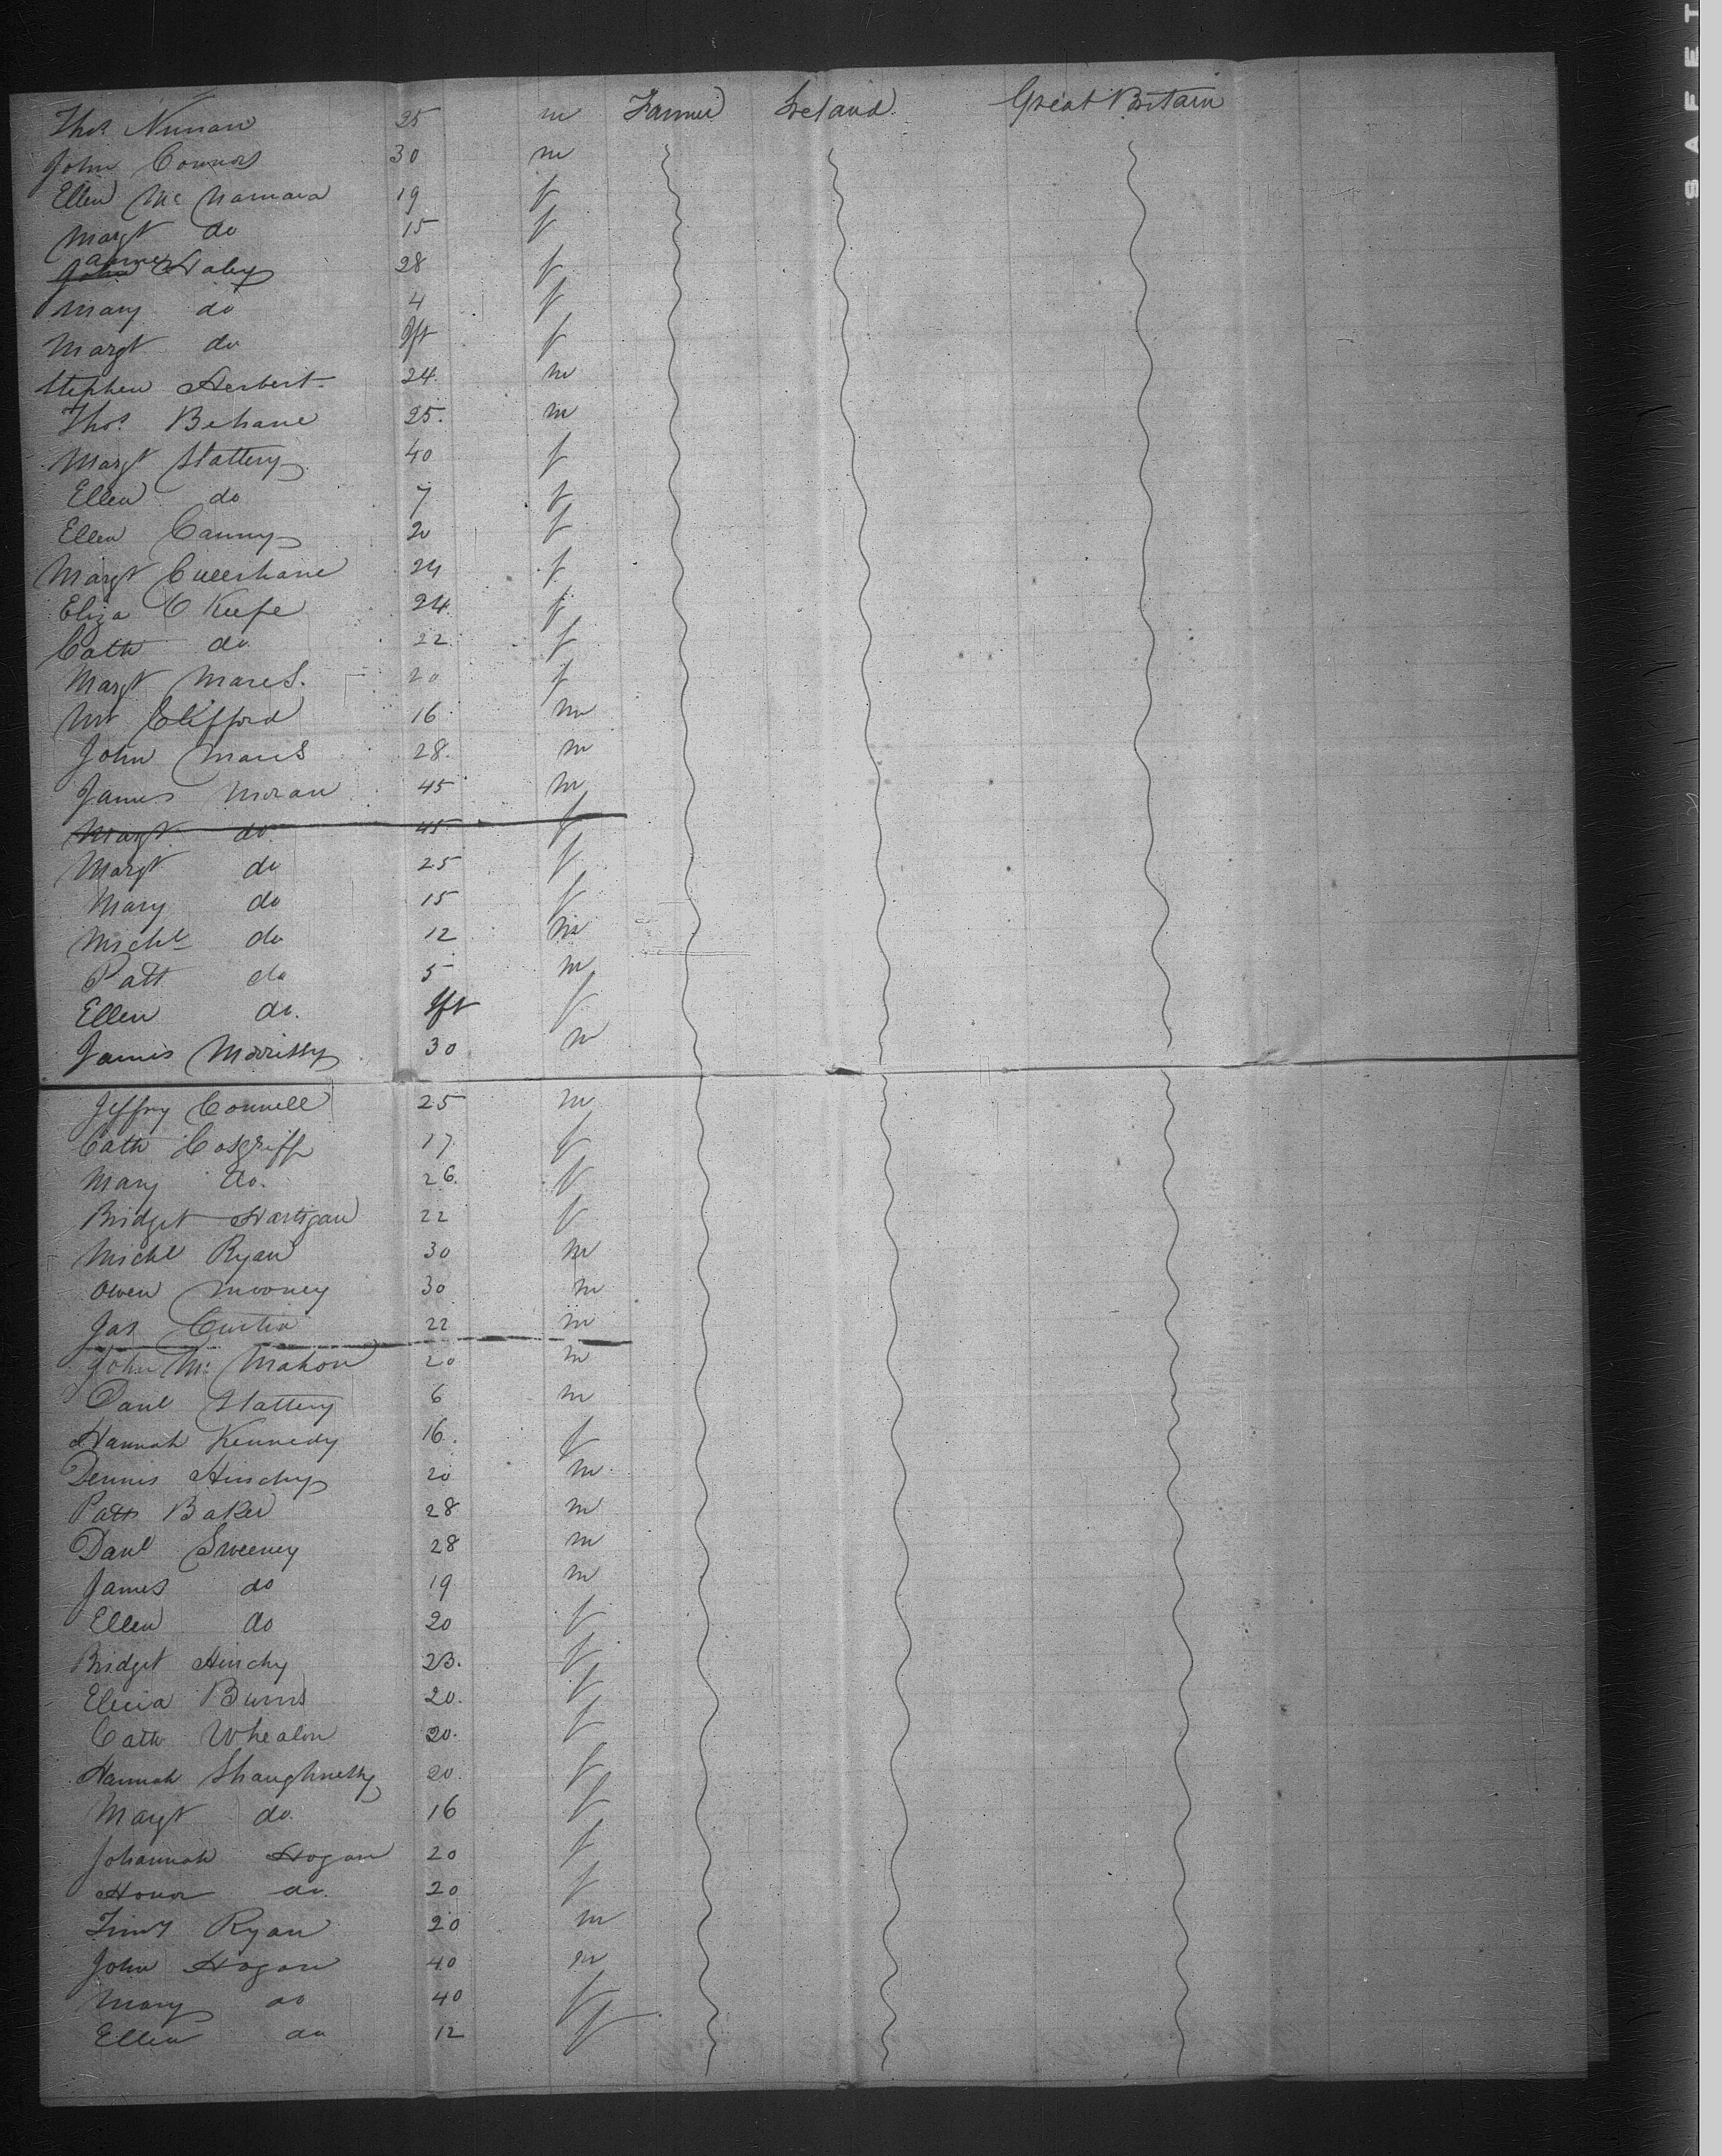 Thos Nunan 25 m Farmer Ireland Great Britain
John Connors 30 m
Ellen Mc Namara 19 f
Margt do 15 f
Haley 28 f
Mary do 4 f
Margt do Ift f
Stephen Herbert 24 m
Thos Behane 25 m
Margt Slattery 40 f
Ellen do 7 f
Ellen Canny 20 f
Margt 24 f
Eliza O Keefe 24 f
Cath do 22 f
Margt 20 f
Clifford 16 m
John 28 m
James Moran 45 m
Margt do 45 f
Margt do 25 f
Mary do 15 f
Michl do 12 m
Patt do 5 m
Ellen do Ift f
James Morrissy 30 m
Jeffry Connell 25 m
Cath Cosgriff 17 f
Mary do 26 f
Bridget Hartigan 22 f
Michl Ryan 30 m
Owen Mooney 30 m
Jas Curtin 22 m
John Mc Mahon 20 m
Danl Slattery 6 m
Hannah Kennedy 16 f
Dennis Hinchy 20 m
Patt Baker 28 m
Danl Sweeney 28 m
James do 19 m
Ellen do 20 f
Bridget Hinchy 23 f
Burns 20 f
Cath Whealon 20 f
Hannah Shaughnessy 20 f
Margt do 16 f
Johannah Hogan 20 f
Honor do 20 f
Timy Ryan 20 m
John Hogan 40 m
Mary do 40 f
Ellen do 12 f
SAFET